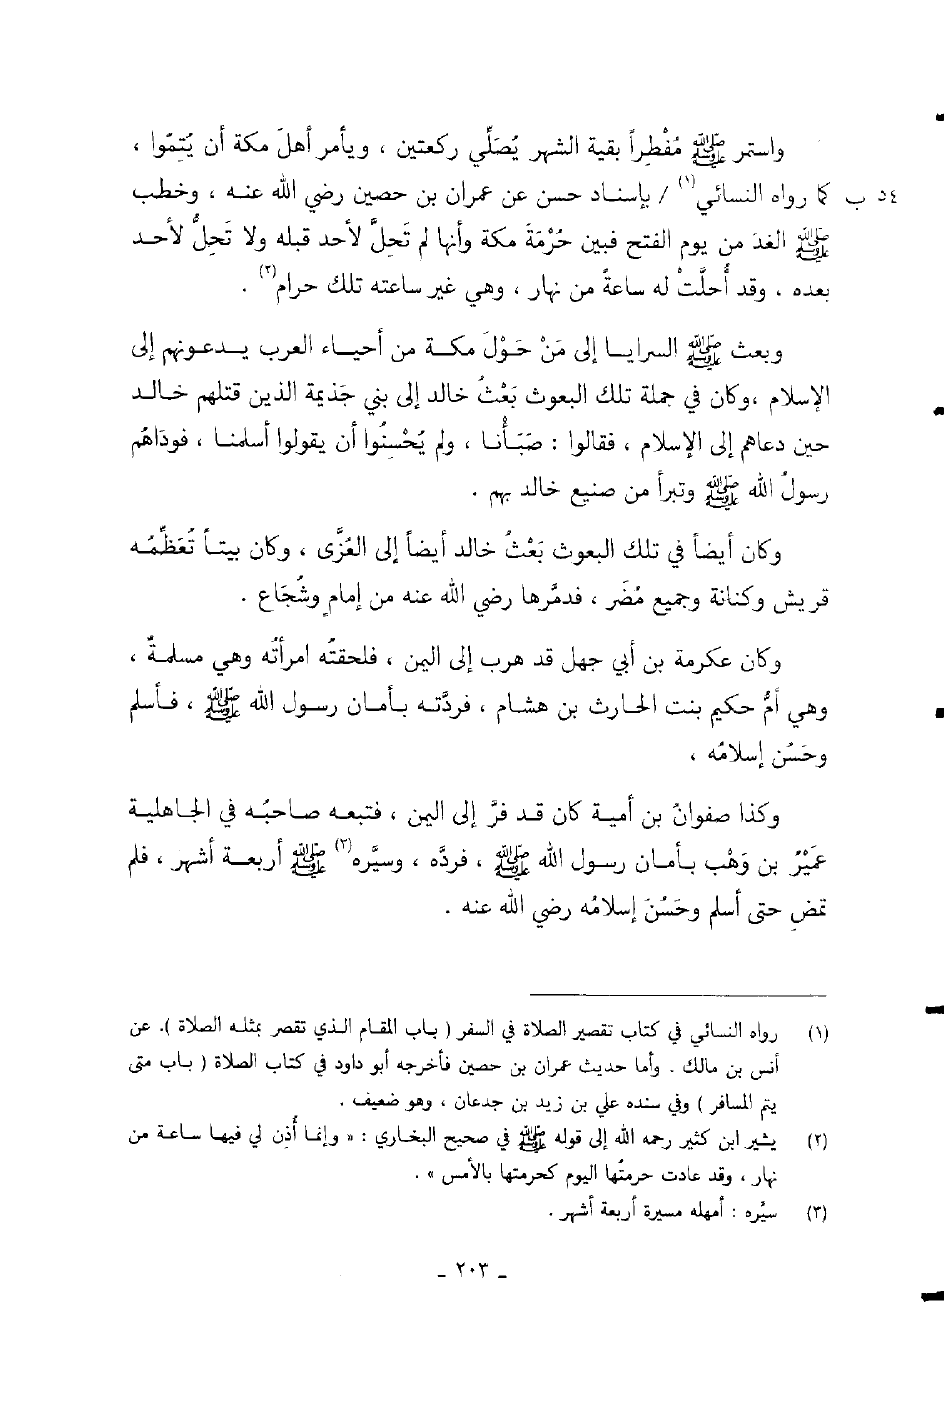 واستمر ﷺ مُفْطِراً بقية الشهر يُصَلِّي ركعتين ، ويأمر أهلَ مكة أن يُتِمّوا ،
٥٤ ب كما رواه النسائي(١) / بإسناد حسن عن عمران بن حصين رضي الله عنه ، وخطب
ﷺ الغدَ من يوم الفتح فبين حُرْمَةَ مكة وأنها لم تَحِلَّ لأحد قبله ولا تَحِلُّ لأحد
بعده ، وقد أُحلَّتْ له ساعةً من نهار ، وهي غير ساعته تلك حرام(٢) .
وبعث ﷺ السرايا إلى مَنْ حَوْلَ مكة من أحياء العرب يدعونهم إلى
الإسلام ،وكان في جملة تلك البعوث بَعْثُ خالد إلى بني جَذيمة الذين قتلهم خالد
حين دعاهم إلى الإسلام ، فقالوا : صَبَأْنا ، ولم يُحْسِنُوا أن يقولوا أسلمنا ، فودَاهُم
رسولُ الله ﷺ وتبرأ من صنيع خالد بهم .
وكان أيضاً في تلك البعوث بَعْثُ خالد أيضاً إلى العُزَّى ، وكان بيتاً تُعَظِّمُه
قريش وكنانة وجميع مُضَر ، فدمَّرها رضي الله عنه من إمامٍ وشُجَاع .
وكان عكرمة بن أبي جهل قد هرب إلى اليمن ، فلحقتْه امرأتُه وهي مسلمةٌ ،
وهي أمُّ حكيم بنت الحارث بن هشام ، فردَّته بأمان رسول الله ﷺ ، فأسلم
وحَسُن إسلامُه ،
وكذا صفوانُ بن أمية كان قد فرَّ إلى اليمن ، فتبعه صاحبُه في الجاهلية
عميْرُ بن وَهْب بأمان رسول الله ﷺ ، فردَّه ، وسيَّره(٣) ﷺ أربعة أشهر ، فلم
تمضِ حتى أسلم وحَسُنَ إسلامُه رضي الله عنه .
(١) رواه النسائي في كتاب تقصير الصلاة في السفر ( باب المقام الذي تقصر بمثله الصلاة ). عن
أنس بن مالك . وأما حديث عمران بن حصين فأخرجه أبو داود في كتاب الصلاة ( باب متى
يتم المسافر ) وفي سنده علي بن زيد بن جدعان ، وهو ضعيف .
(٢) يشير ابن كثير رحمه الله إلى قوله ﷺ في صحيح البخاري : « وإنما أُذن لي فيها ساعة من
نهار ، وقد عادت حرمتُها اليوم كحرمتها بالأمس » .
(٣) سيَّره : أمهله مسيرة أربعة أشهر .
ـ ٢٠٣ ـ